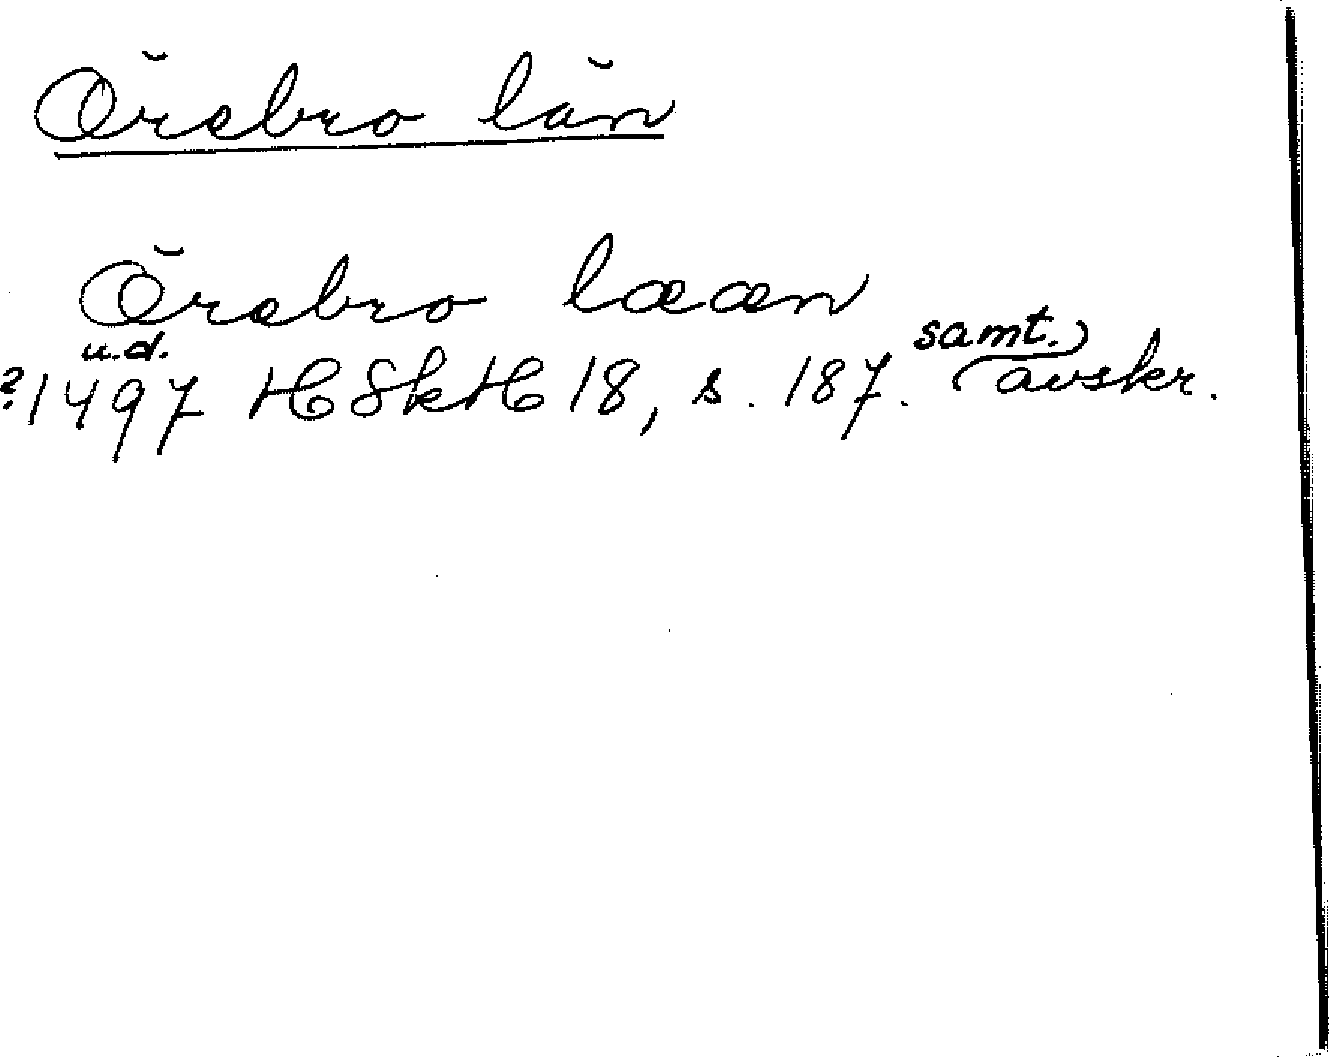 Örebro län
Örebro lææn
u.d.
?1497 HSkH 18, s. 187. samt. avskr.